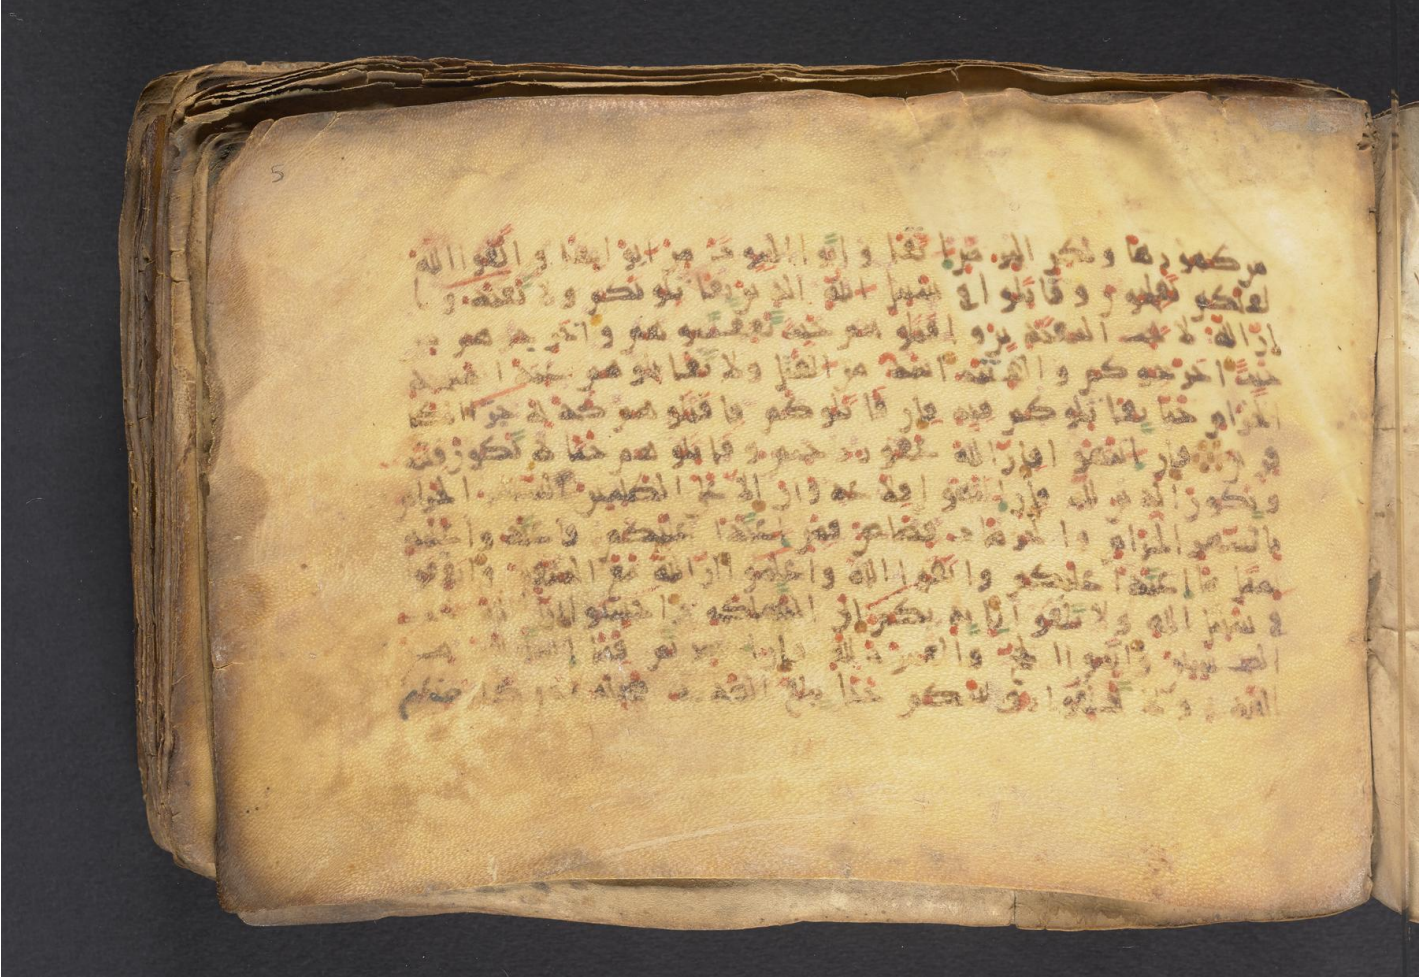 5
من ظهورها ولكن البر من اتقى واتوا البيوت من ابوابها واتقوا الله
لعلكم تفلحون وقاتلوا في سبيل الله الذين يقاتلونكم ولا تعتدوا ا
ن الله لا يحب المعتدين واقتلوهم حيث ثقفتموهم واخرجوهم من
حيث اخرجوكم والفتنة اشد من القتل ولا تقاتلوهم عند المسجد
الحرام حتى يقاتلوكم فيه فان قاتلوكم فاقتلوهم كذلك جزا الكا
فرين فان انتهوا فان الله غفور رحيم وقاتلوهم حتى لا تكون فتنة
ويكون الدين لله فان انتهوا فلا عدون الا على الظلمين الشهر الحرام
بالشهر الحرام والحرمات قصاص فمن اعتدى عليكم فاعتدوا عليه
بمثل ما اعتدى عليكم واتقوا الله واعلموا ان الله مع المتقين وانفقوا
في سبيل الله ولا تلقوا بايديكم الى التهلكة واحسنوا ان الله يحب
المحسنين واتموا الحج والعمرة لله فان احصرتم فما استيسر من
الهدي ولا تحلقوا روسكم حتى يبلغ الهدي محله فمن كان منكم